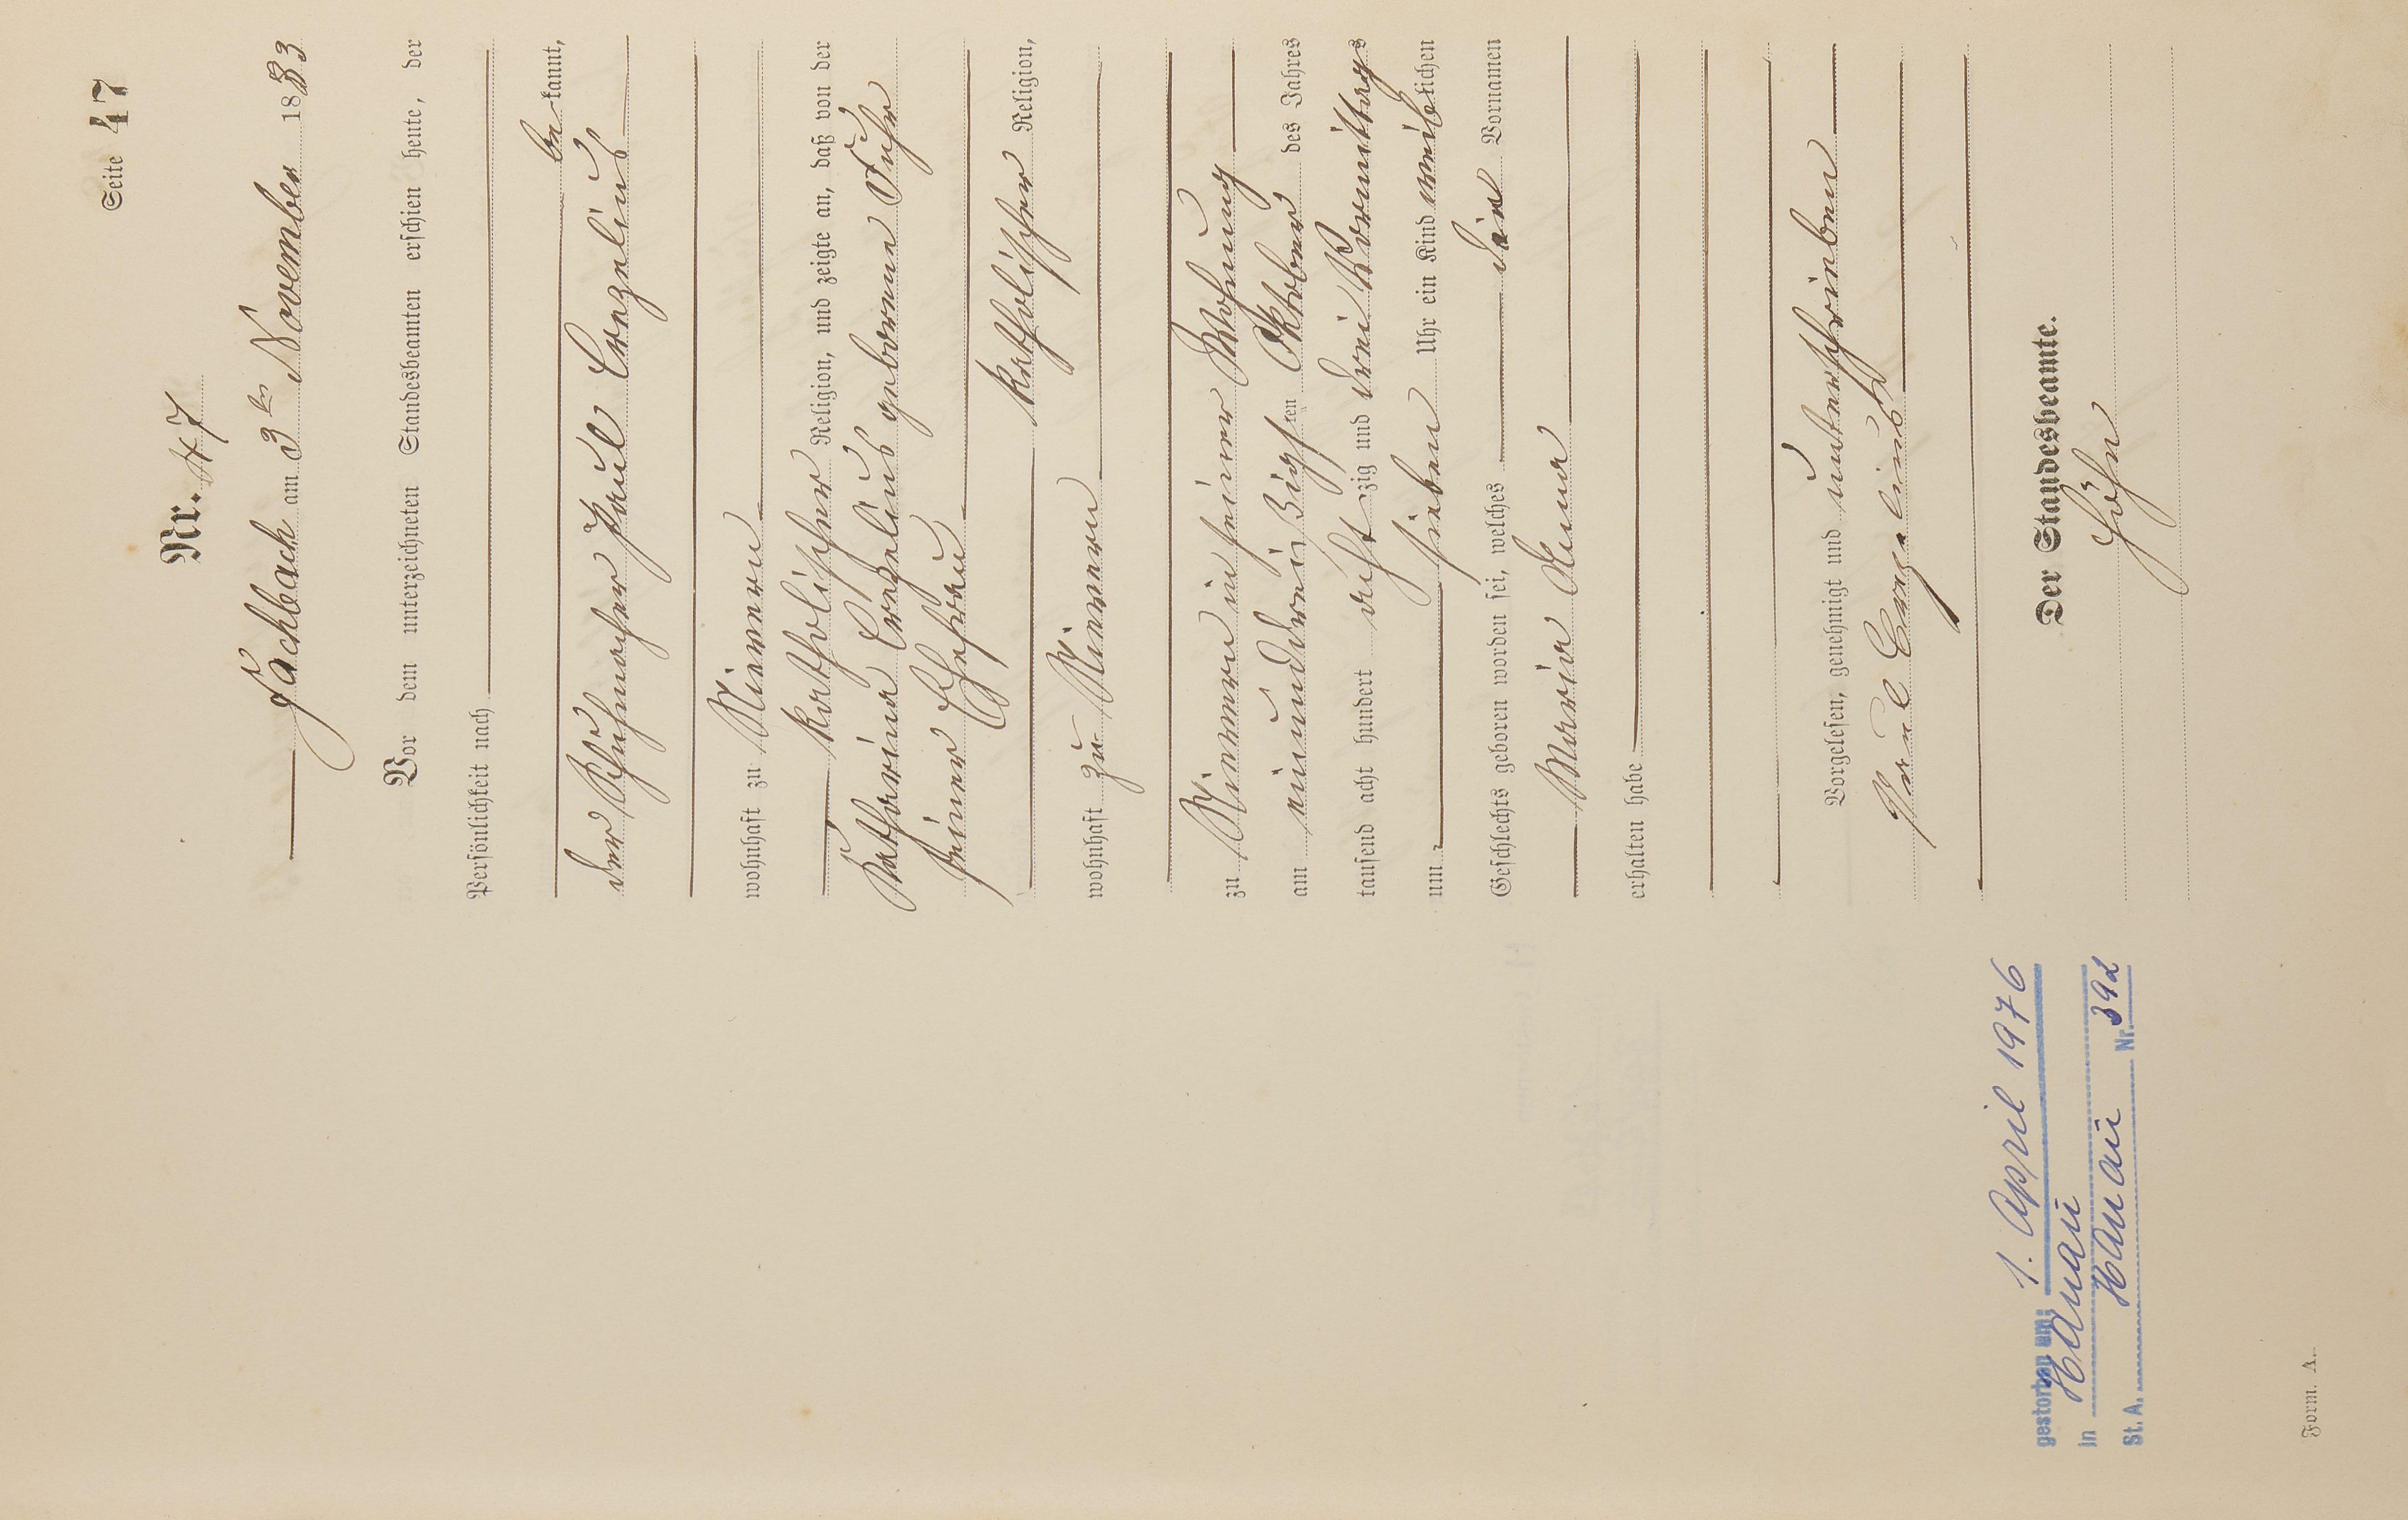 Seite 47
Nr. 47
Fachbach am 3ten November 1883
Vor dem unterzeichneten Standesbeamten erschien heute, der
Persönlichkeit nach
be kannt,
der Schuhmacher Paul Crezelius
wohnhaft zu Nievern
katholischer Religion, und zeigte an, daß von der
Katharina Crezelius geborene Fuhr
seiner Ehefrau
katholischer Religion,
wohnhaft zu Nievern
zu Nievern in seiner Wohnung
am einunddreißigsten Oktober des Jahres
tausend acht hundert acht zig und drei Vormittags
um sieben Uhr ein Kind weiblichen
Geschlechts geboren worden sei, welches die Vornamen
Maria Anna
erhalten habe
Vorgelesen, genehmigt und unterschrieben
Paul Crezelius
Der Standesbeamte.
Höhn
gestorben am: 1. April 1976
in Hanau
St. A. Hanau Nr. 392
Form. A.